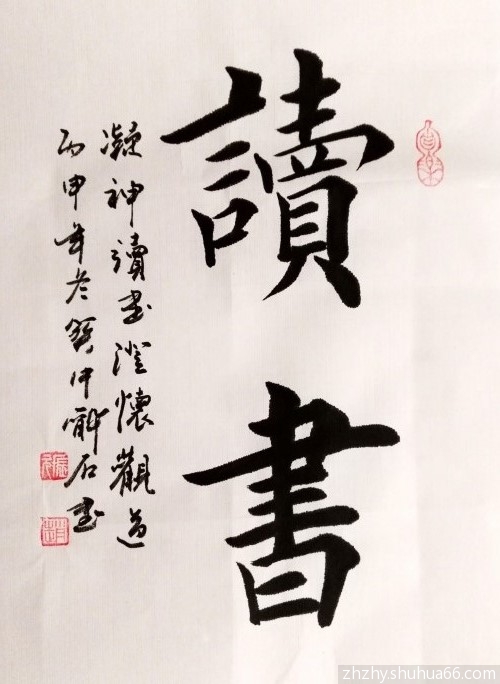 讀書
凝神讀書澄懷觀道
丙申年冬賀中
石書
zhzhy.shuhua66.com